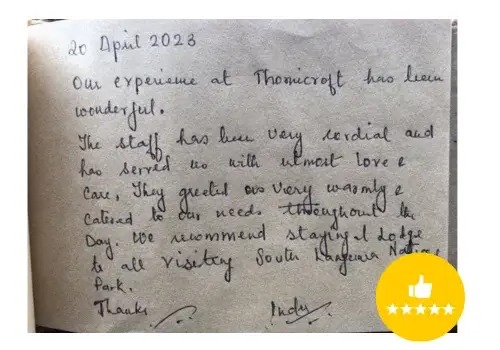 20 April 2023
Our experience at Thornicroft has been
wonderful.
The staff has been very cordial and
has served us with utmost love &
care. They greeted us very warmly &
catered to our needs throughout the
Day. We recommend staying Lodge
to all visiting South Luangwa
Park.
Thanks Indu